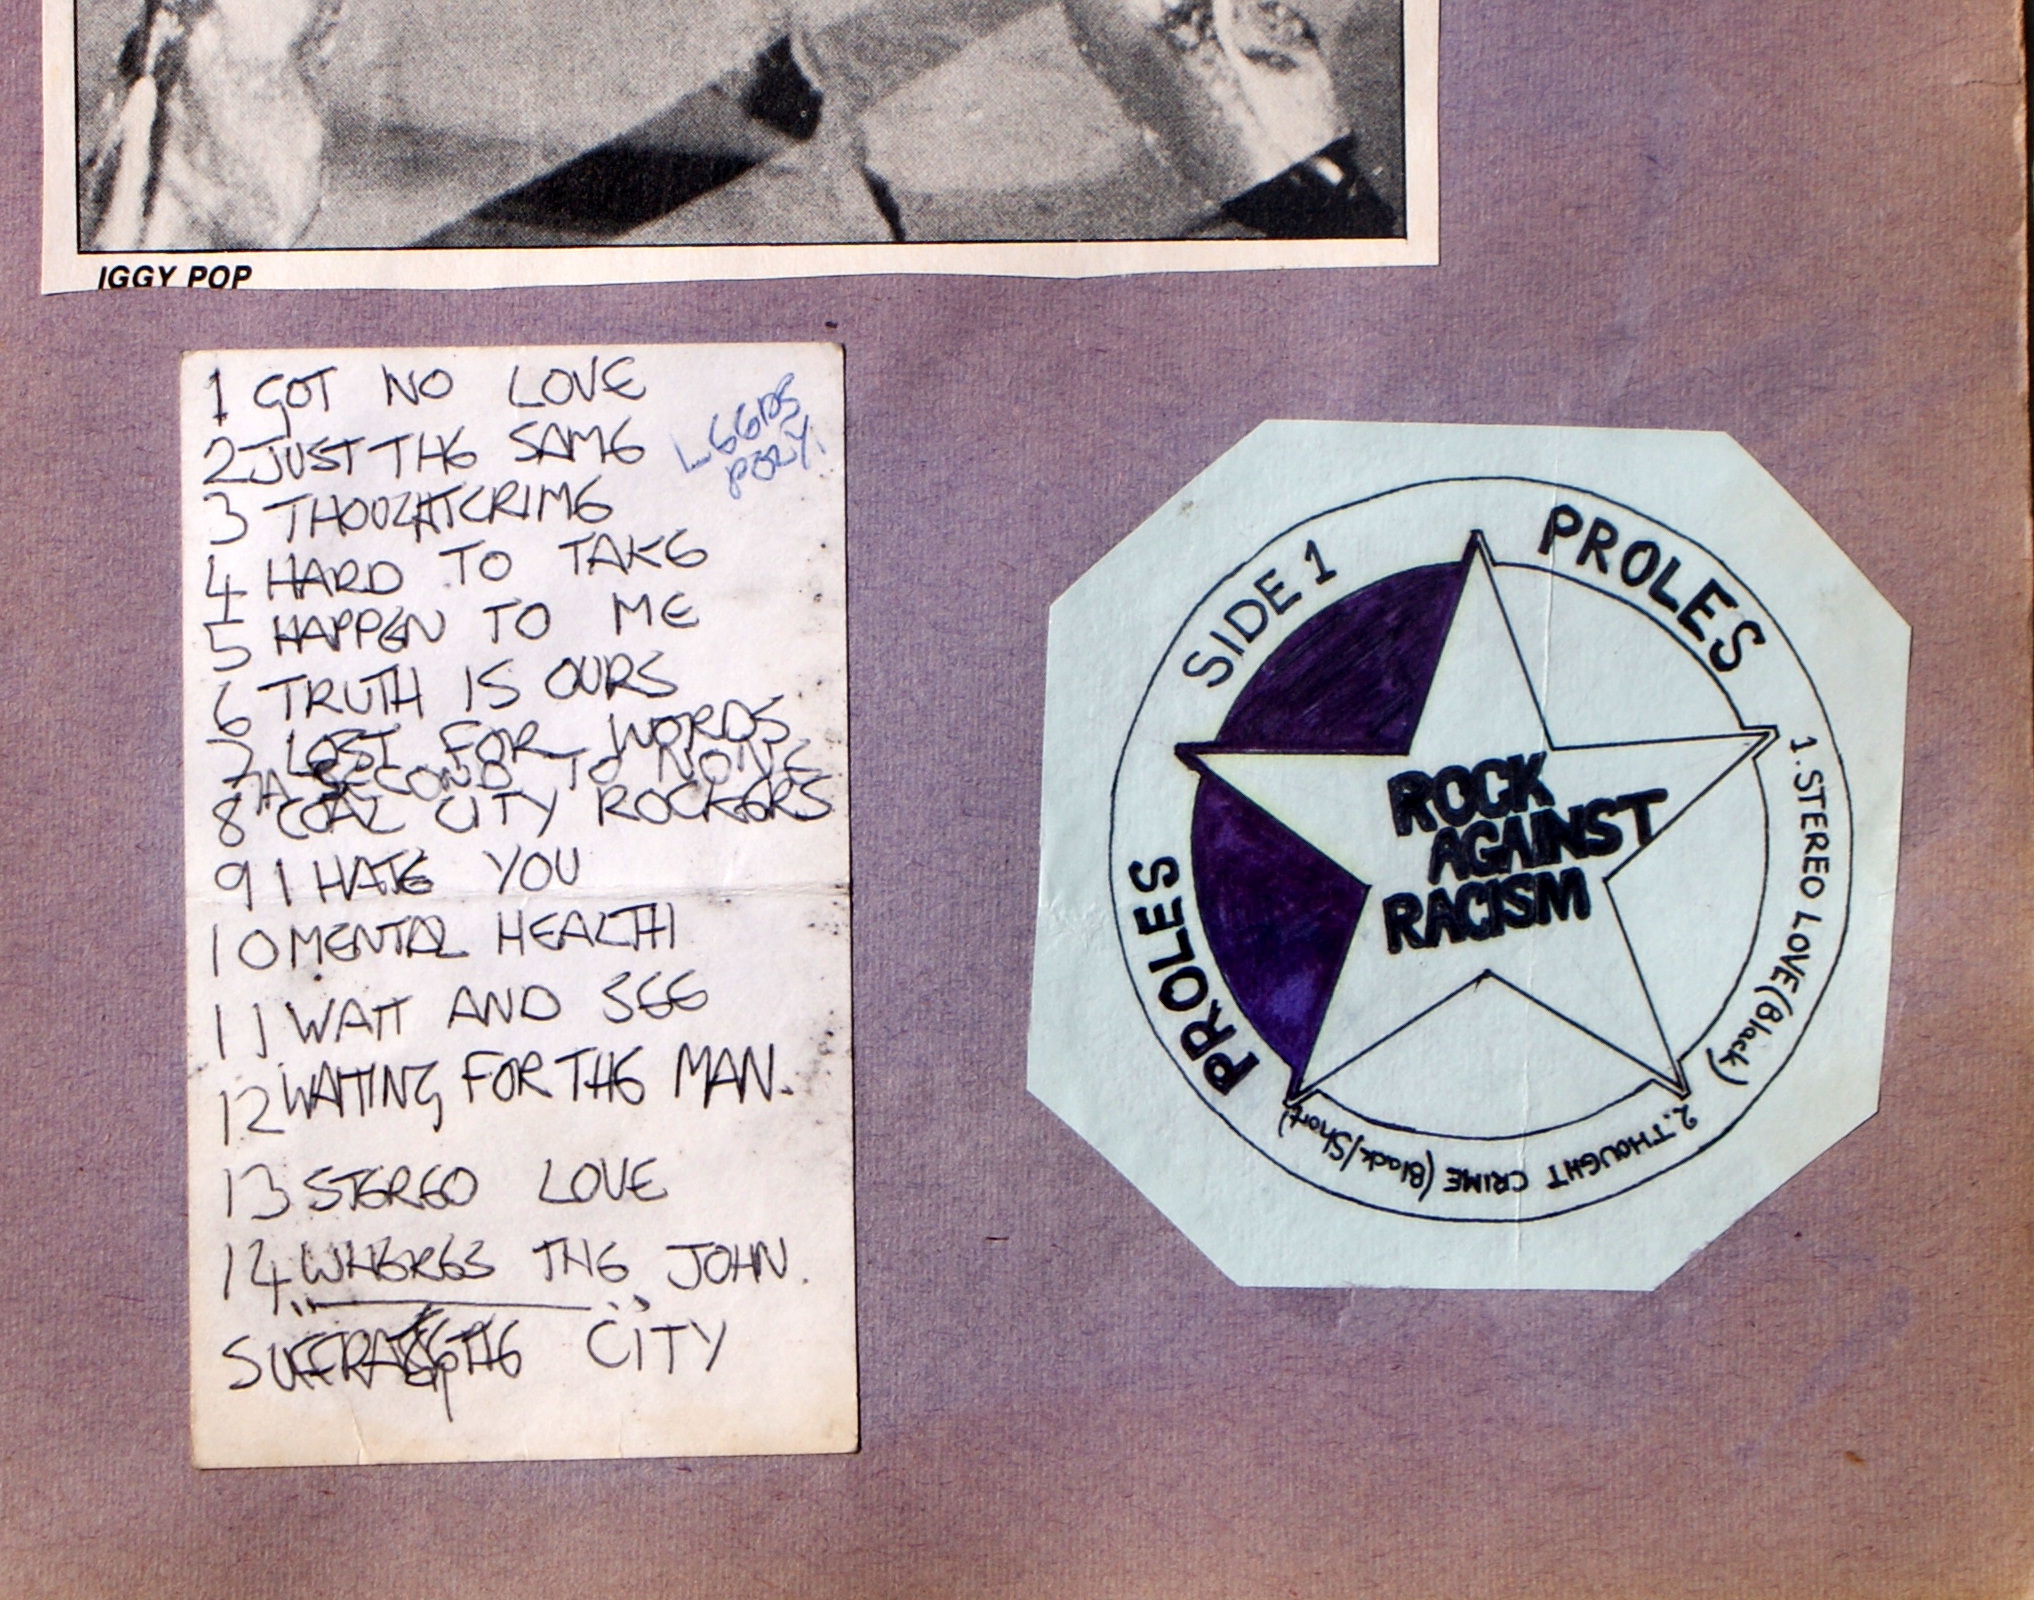 IGGY POP
1 GOT NO LOVE
LEEDS
POLY.
2 JUST THE SAME
3 THOUGHTCRIME
4 HARD TO TAKE
5 HAPPEN TO ME
6 TRUTH IS OURS
7 LOST FOR WORDS
7A SECOND TO NONE
8 COAL CITY ROCKERS
9 I HATE YOU
10 MENTAL HEALTH
11 WAIT AND SEE
12 WAITING FOR THE MAN.
13 STEREO LOVE
14 WHERES THE JOHN.
SUFFRAGETTE CITY
SIDE 1
PROLES
1. STEREO LOVE (Black)
2. THOUGHT CRIME (Black/Short)
PROLES
ROCK
AGAINST
RACISM